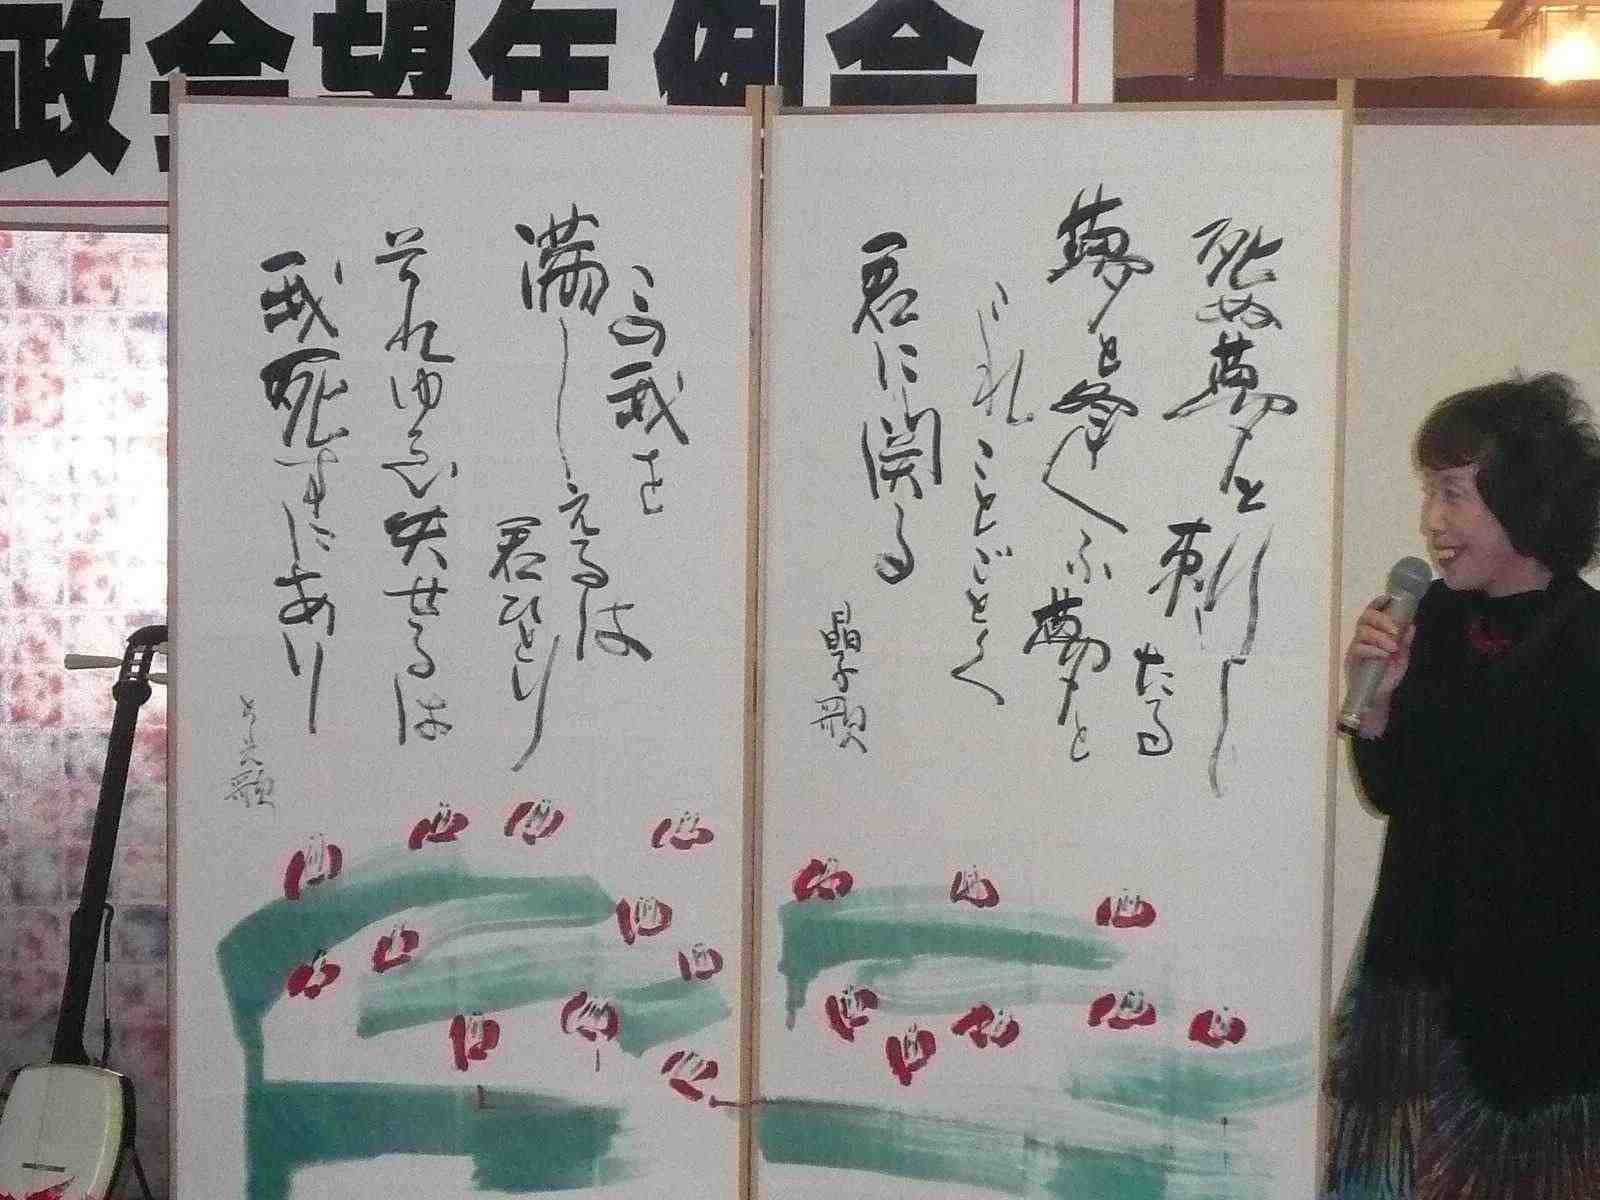 政会望年例会
死ぬ夢と刺し
たる
夢と逢ふ夢と
これことごとく
君に関る
晶子歌
この我を
満しえるは
君ひとり
それゆゑ失せるは
我死すにあり
歌